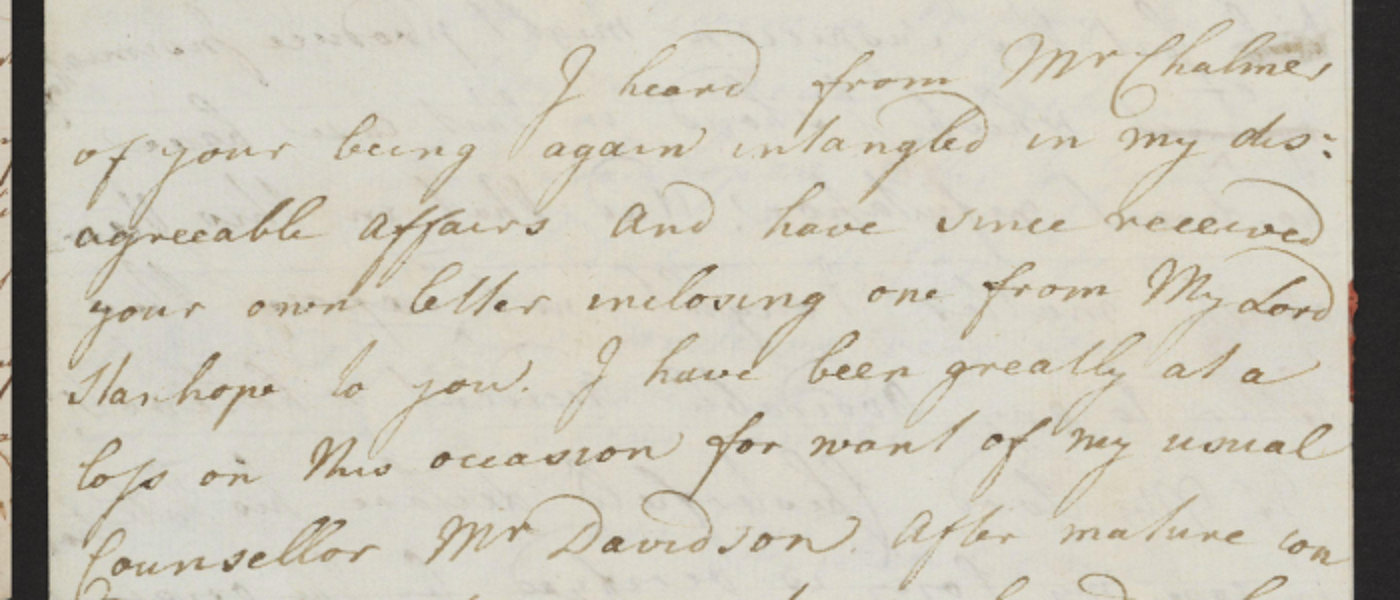 I heard from Mr Chalmer
of your being again intangled in my dis:
agreeable affairs and have since received
your own letter inclosing one from My Lord
Stanhope to you. I have been greatly at a
loss on this occasion for want of my usual
Counsellor Mr Davidson. After mature con